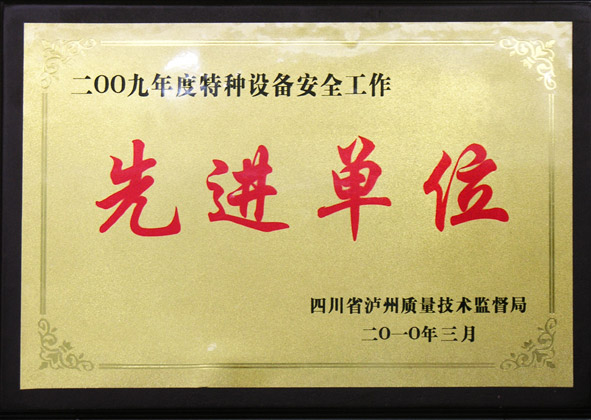 二〇〇九年度特种设备安全工作
先进单位
四川省泸州质量技术监督局
二〇一〇年三月